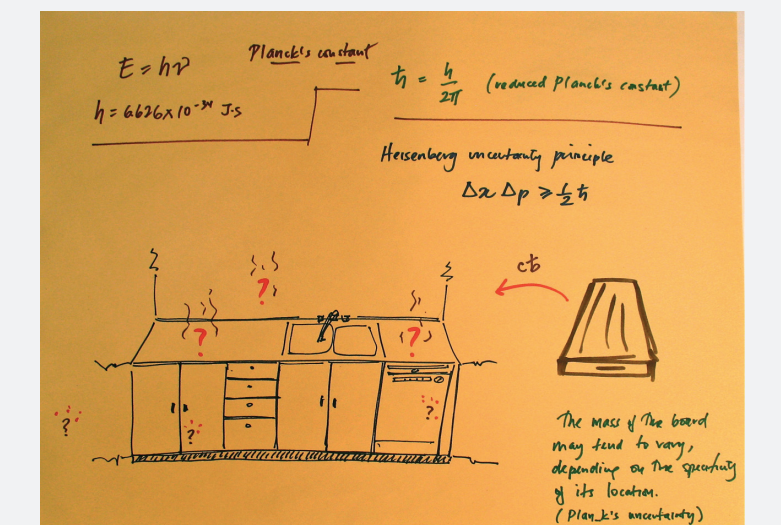 Planck's constant
E = hν
h = 6.626 × 10⁻³⁴ J·s
ħ = h/2π (reduced Planck's constant)
Heisenberg uncertainty principle
Δx Δp ⩾ 1/2 ħ
cħ
?
?
?
?
?
?
The mass of the board
may tend to vary,
depending on the
of its location.
(Plan_k's uncertainty)